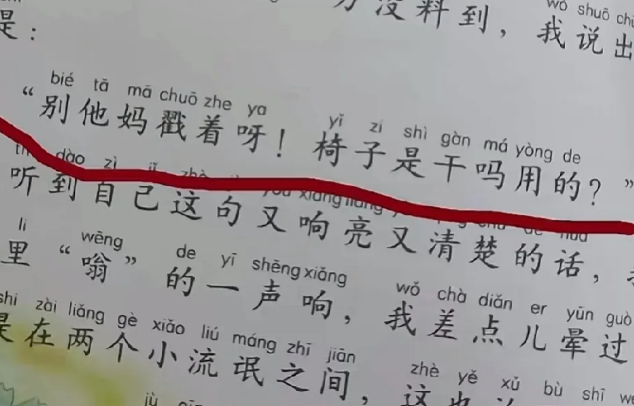 没料到，我说出
是：
bié tā mā chuō zhe ya yǐ zi shì gàn má yòng de
“别他妈戳着呀！椅子是干吗用的？”
听到自己这句又响亮又清楚的话，
li wēng de yī shēng xiǎng wǒ chà diǎn er yūn guò
里“嗡”的一声响，我差点儿晕过
shì zài liǎng gè xiǎo liú máng zhī jiān zhè yě xǔ bù shì
是在两个小流氓之间，